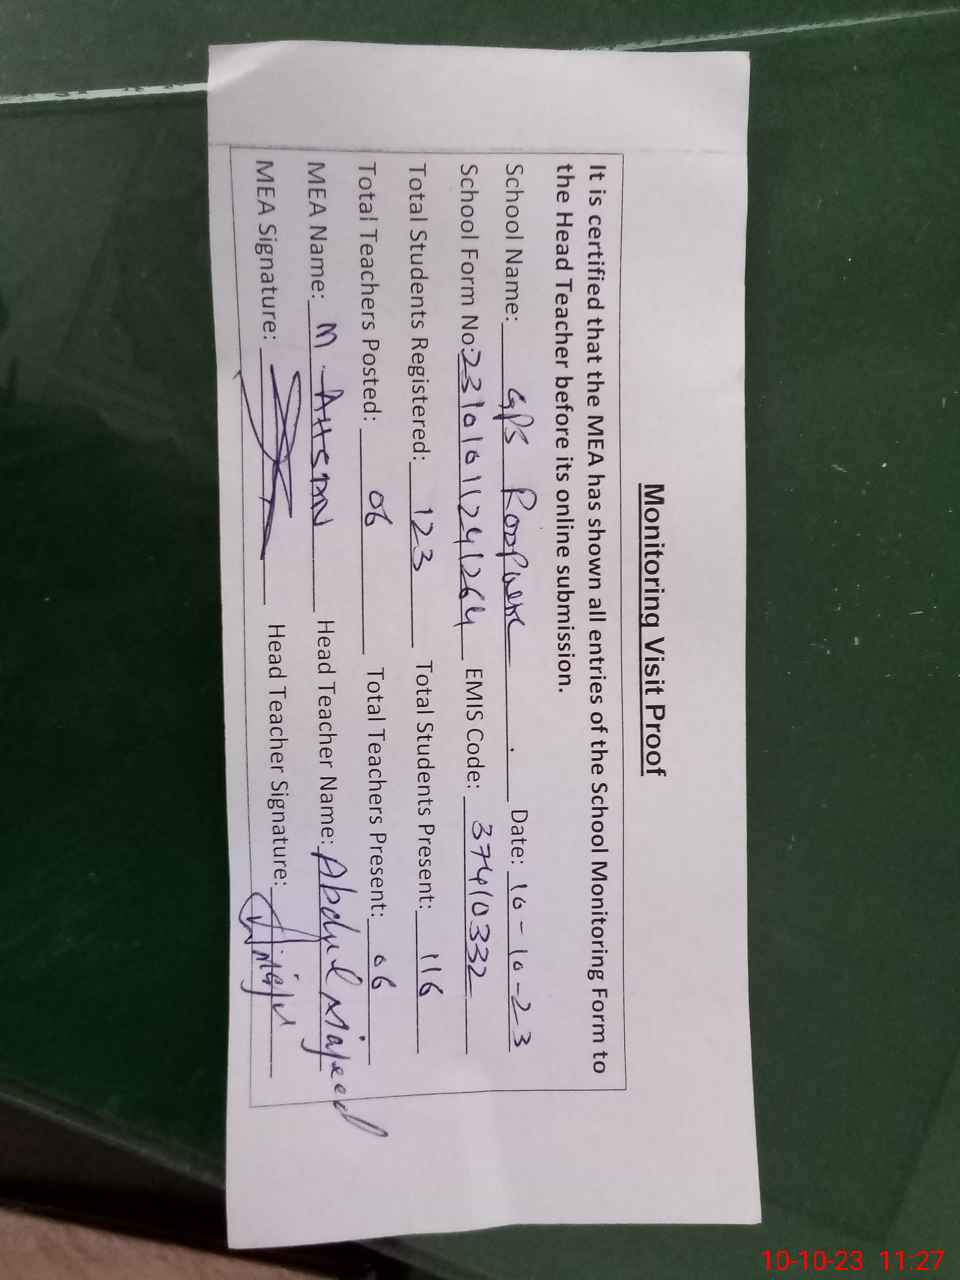 Monitoring Visit Proof
It is certified that the MEA has shown all entries of the School Monitoring Form to
the Head Teacher before its online submission.
School Name: GPS Date: 10-10-23
School Form No: 23101011241264 EMIS Code: 37410332
Total Students Registered: 123 Total Students Present: 116
Total Teachers Posted: 06 Total Teachers Present: 06
MEA Name: M AHSAN Head Teacher Name: Abdul Majeed
MEA Signature: Head Teacher Signature:
10-10-23 11:27